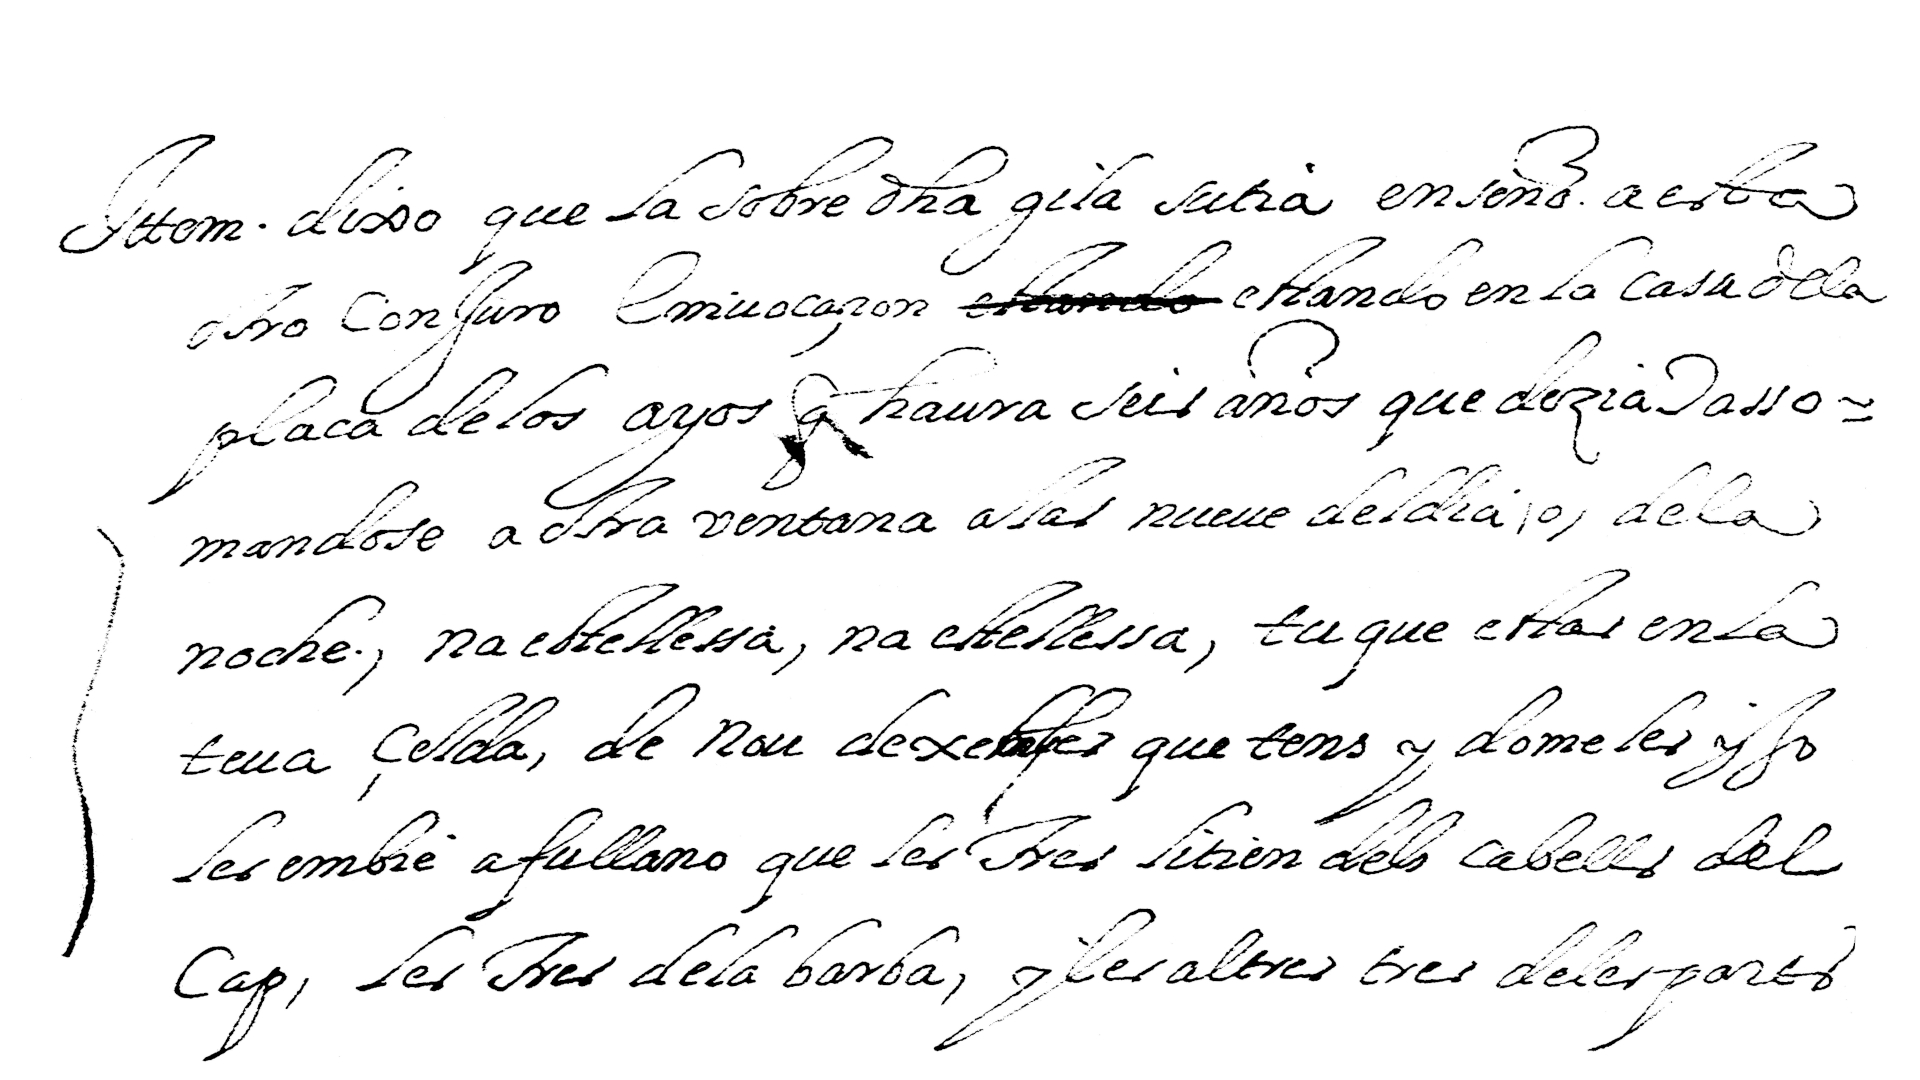 Ittem. dixo que la sobre dha gila sutia enseño. a esta
otro Conjuro Eminuocaçon estando estando en la casa dela
placa de los ayos q haura seis años que dezia Dasso=
mandose a otra ventana a las nueue del dia, o, de la
noche., na estellessa, na estellessa, tu que estas en la
teua Çelda, de nou dexembles que tens y dome les y jo
les embie a fullano que les Tres litien dels cabells del
Cap, les Tres de la barba, y les altres tres de les parts